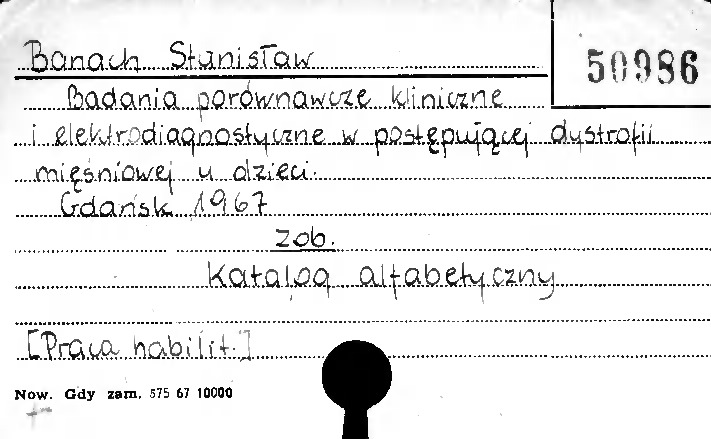 Banach Stanisław
50986
Badania porównawcze kliniczne
i elektrodiagnostyczne w postępującej dystrofii
mięśniowej u dzieci.
Gdańsk 1967
zob.
Katalog alfabetyczny
[Praca habilit.]
Now. Gdy zam. 575 67 10000